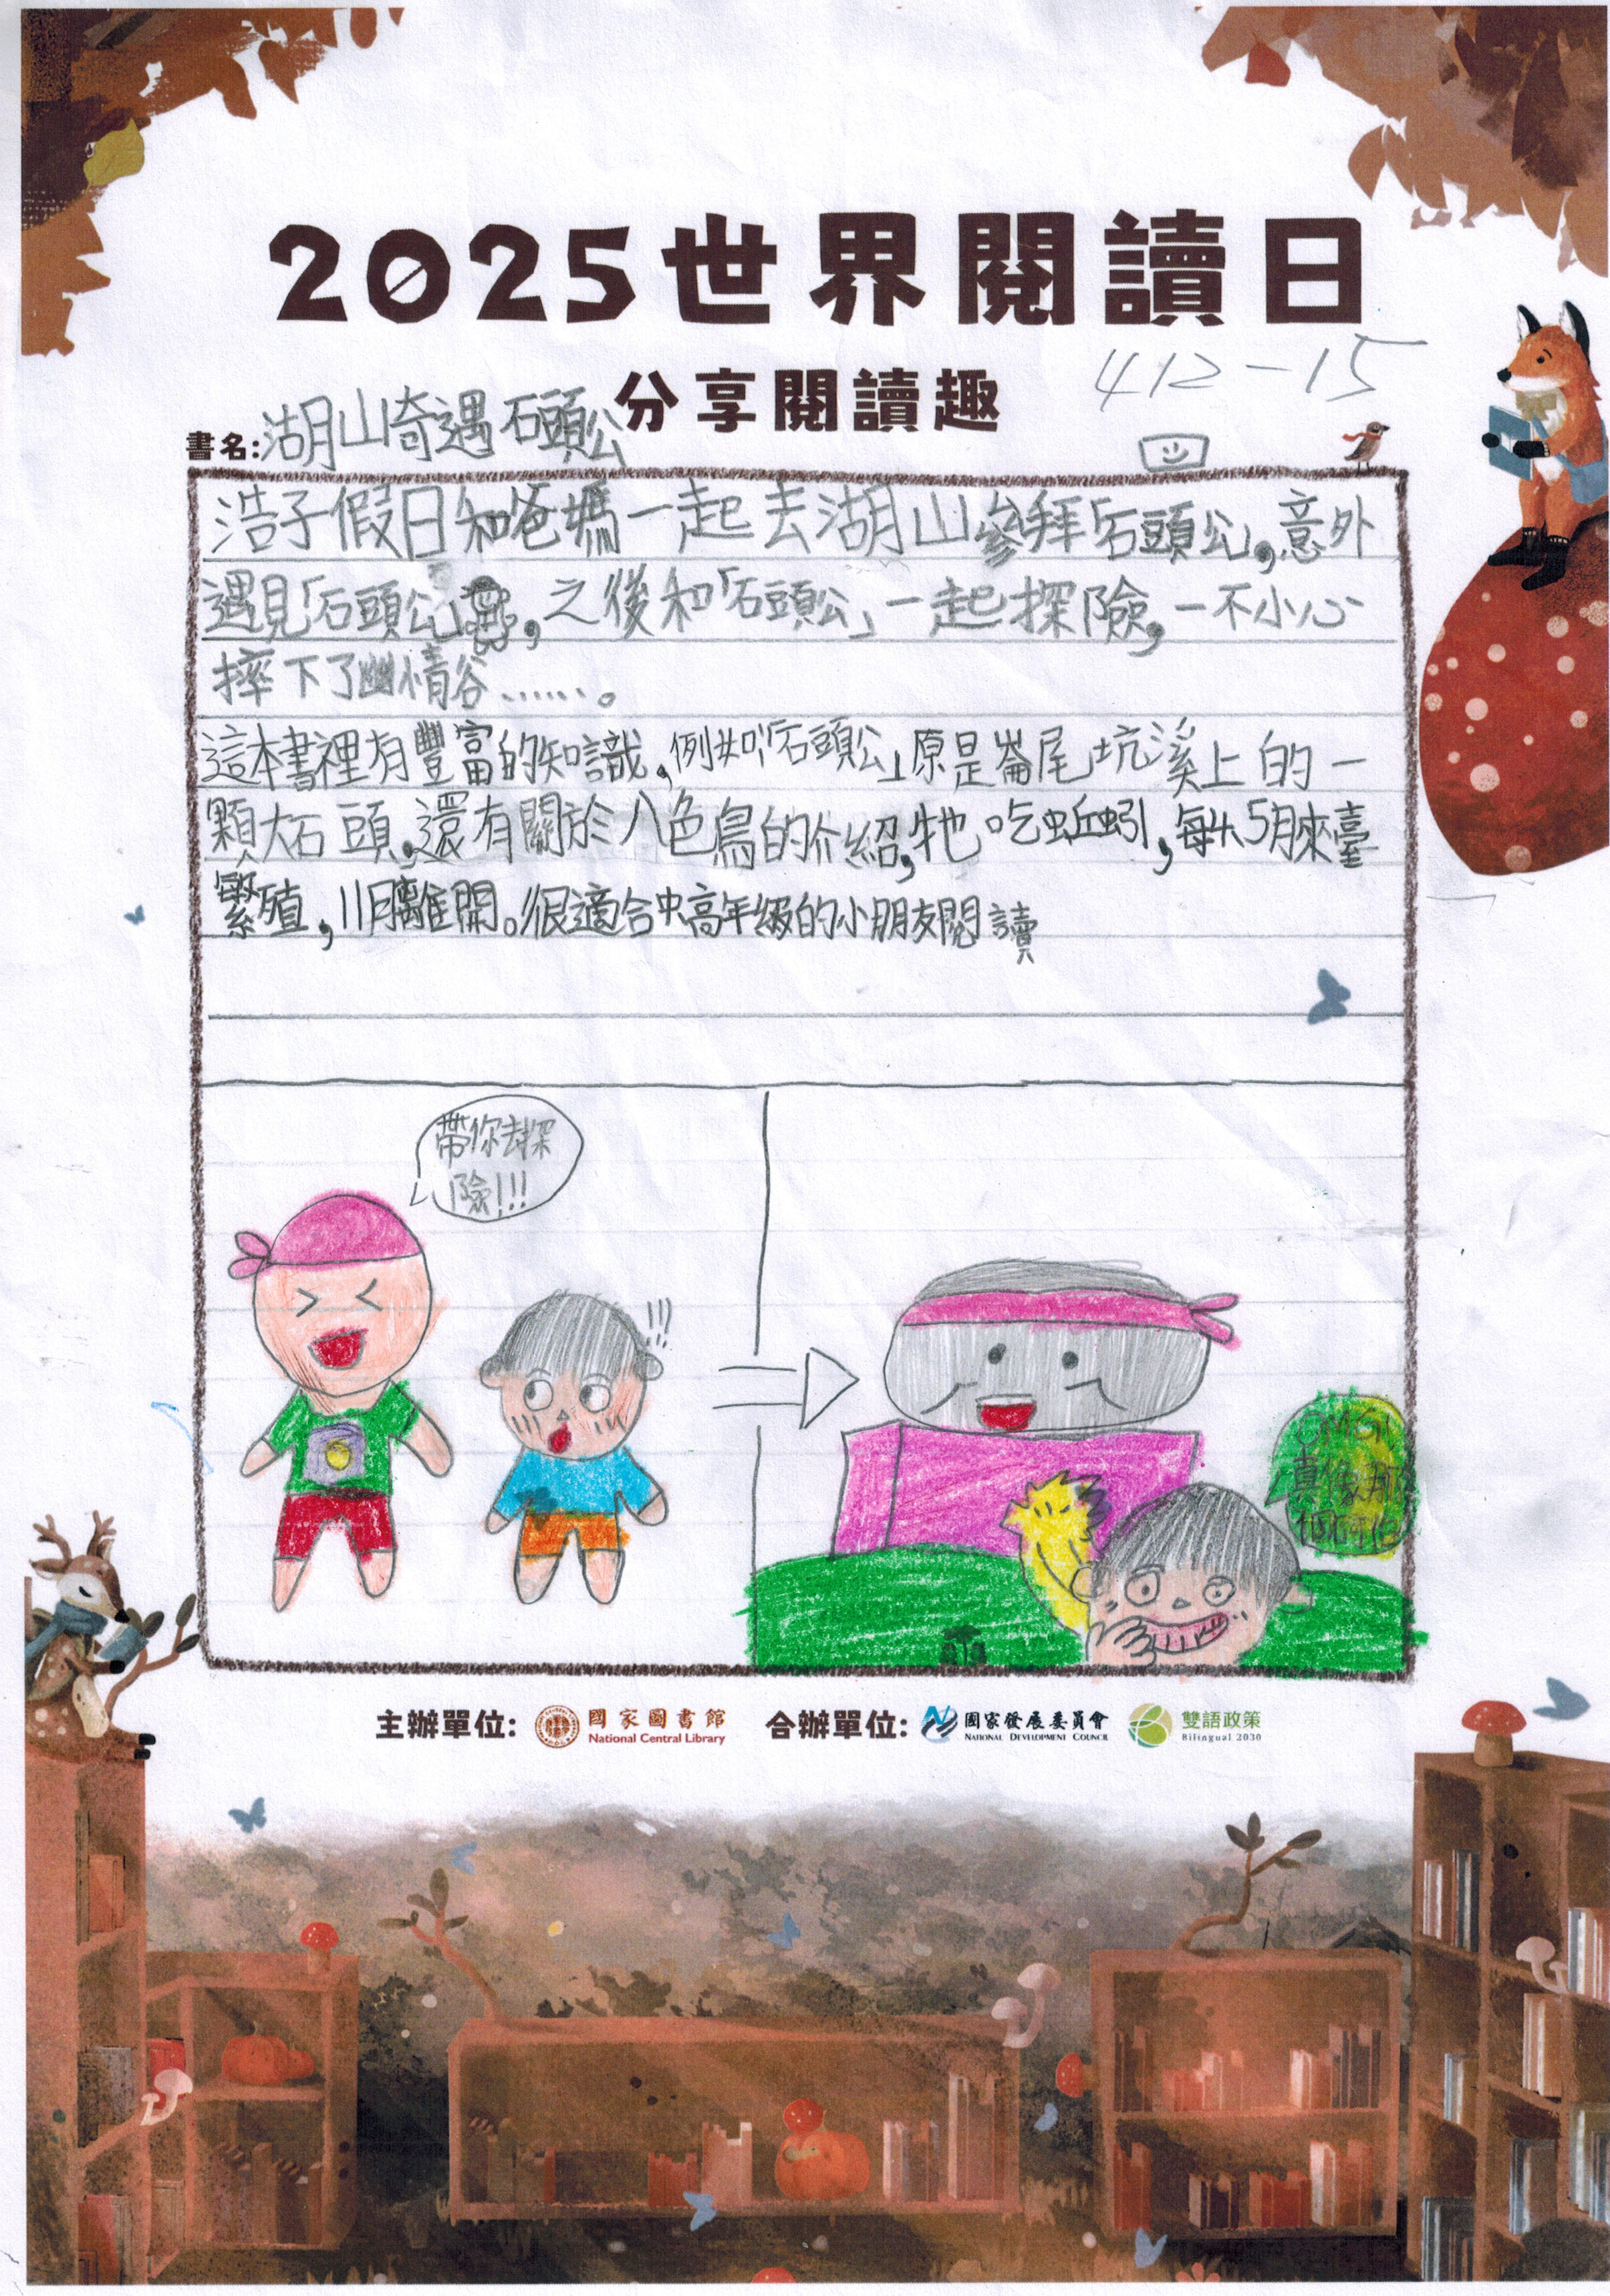 2025世界閱讀日
分享閱讀趣
412-15
書名:湖山奇遇石頭公
浩子假日和爸媽一起去湖山參拜「石頭公」,意外
遇見「石頭公」,之後和「石頭公」一起探險,一不小心
摔下了幽情谷......。
這本書裡有豐富的知識,例如「石頭公」原是崙尾坑溪上的一
顆大石頭,還有關於八色鳥的介紹,牠吃蚯蚓,每年5月來臺
繁殖,11月離開。很適合中高年級的小朋友閱讀
帶你去探
險!!!
OMG!
真像
主辦單位:
國家圖書館
National Central Library
合辦單位:
國家發展委員會
NATIONAL DEVELOPMENT COUNCIL
雙語政策
Bilingual 2030